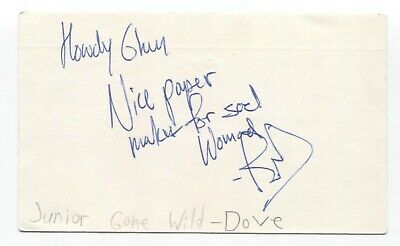 Howdy Glen
Nice paper
maker for sad
Woman
Junior Gone Wild - Dove